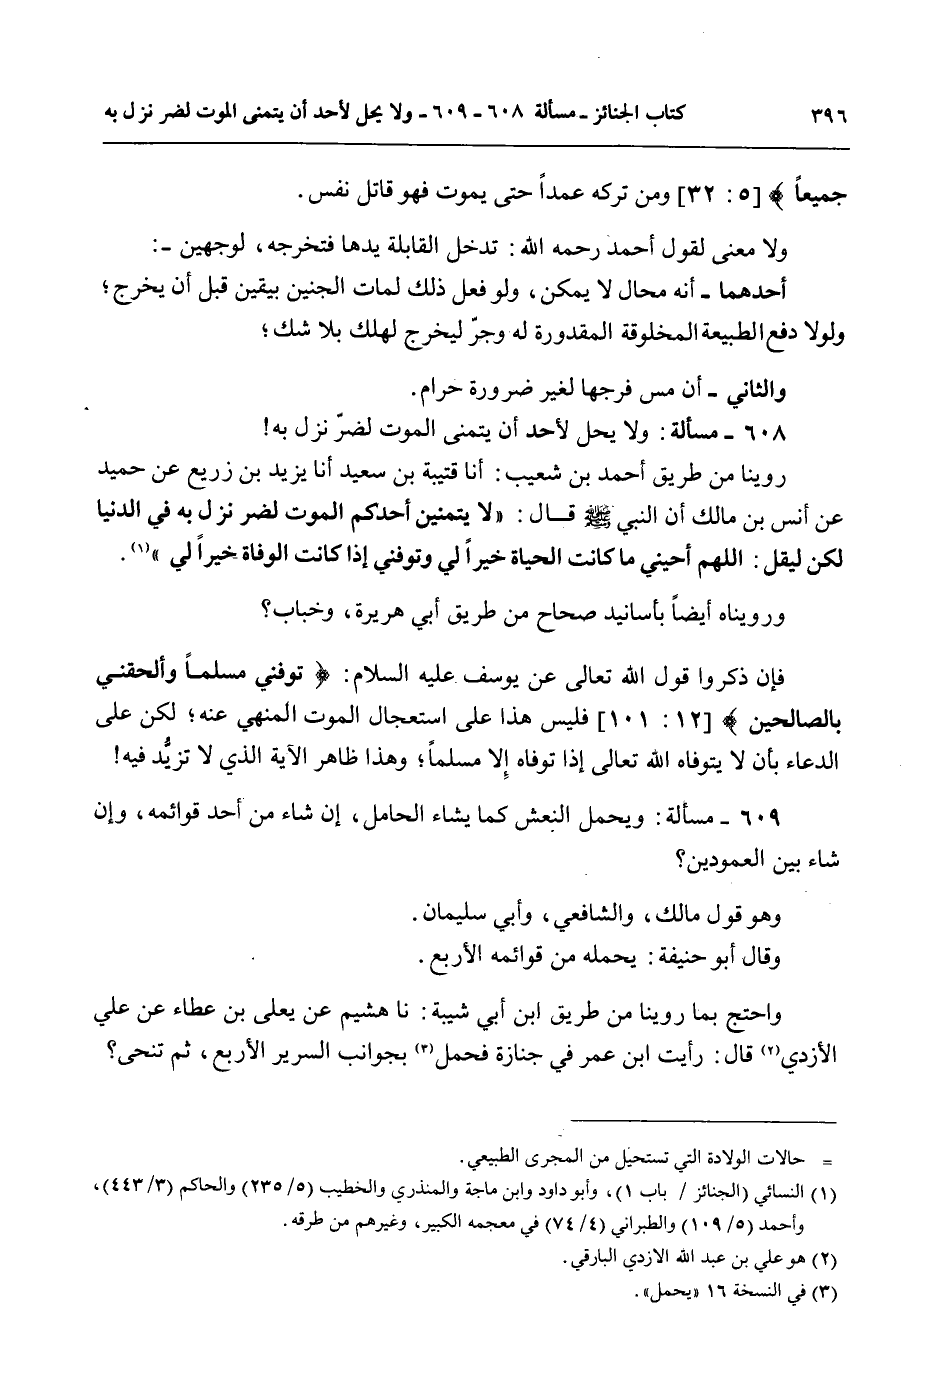 ٣٩٦ كتاب الجنائز ـ مسألة ٦٠٨ ـ ٦٠٩ ـ ولا يحل لأحد أن يتمنى الموت لضر نزل به
جميعاً ﴾ [٥: ٣٢] ومن تركه عمداً حتى يموت فهو قاتل نفس.
ولا معنى لقول أحمد رحمه الله: تدخل القابلة يدها فتخرجه، لوجهين ـ:
أحدهما ـ أنه محال لا يمكن، ولو فعل ذلك لمات الجنين بيقين قبل أن يخرج؛
ولولا دفع الطبيعة المخلوقة المقدورة له وجرّ ليخرج لهلك بلا شك؛
والثاني ـ أن مس فرجها لغير ضرورة حرام.
٦٠٨ ـ مسألة: ولا يحل لأحد أن يتمنى الموت لضرّ نزل به!
روينا من طريق أحمد بن شعيب: أنا قتيبة بن سعيد أنا يزيد بن زريع عن حميد
عن أنس بن مالك أن النبي ﷺ قـال: «لا يتمنين أحدكم الموت لضر نزل به في الدنيا
لكن ليقل: اللهم أحيني ما كانت الحياة خيراً لي وتوفني إذا كانت الوفاة خيراً لي»(١).
ورويناه أيضاً بأسانيد صحاح من طريق أبي هريرة، وخباب؟
فإن ذكروا قول الله تعالى عن يوسف عليه السلام: ﴿ توفني مسلمـاً وألحقنـي
بالصالحين ﴾ [١٢: ١٠١] فليس هذا على استعجال الموت المنهي عنه؛ لكن على
الدعاء بأن لا يتوفاه الله تعالى إذا توفاه إلا مسلماً؛ وهذا ظاهر الآية الذي لا تزيُّد فيه!
٦٠٩ ـ مسألة: ويحمل النعش كما يشاء الحامل، إن شاء من أحد قوائمه، وإن
شاء بين العمودين؟
وهو قول مالك، والشافعي، وأبي سليمان.
وقال أبو حنيفة: يحمله من قوائمه الأربع.
واحتج بما روينا من طريق ابن أبي شيبة: نا هشيم عن يعلى بن عطاء عن علي
الأزدي(٢) قال: رأيت ابن عمر في جنازة فحمل(٣) بجوانب السرير الأربع، ثم تنحى؟
= حالات الولادة التي تستحيل من المجرى الطبيعي.
(١) النسائي (الجنائز / باب ١)، وأبو داود وابن ماجة والمنذري والخطيب (٥/ ٢٣٥) والحاكم (٤٤٣/٣)،
وأحمد (٥/ ١٠٩) والطبراني (٤/ ٧٤) في معجمه الكبير، وغيرهم من طرقه.
(٢) هو علي بن عبد الله الازدي البارقي.
(٣) في النسخة ١٦ «يحمل».